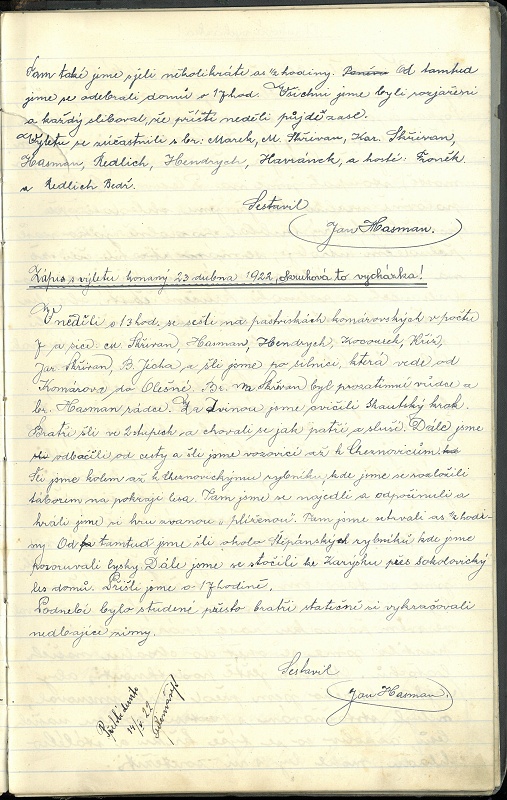 Tam také jsme sjeli několikráte as ½ hodiny. Od tamtud
jsme se odebrali domů o 17 hod. Všichni jsme byli rozjařeni
a každý sliboval, že příští neděli půjde zase.
Výletu se súčastnili s br: Marek, M. Skřivan, Kar. Skřivan,
Hasman, Redlich, Hendrych, Havránek, a hosté: Froněk
a Redlich Bedř.
Sestavil
Jan Hasman.
Zápis s výletu konaný 23 dubna 1922, Skauková to vycházka!
V neděli o 13 hod. se sešli na pastviskách komárovských v počtu
7 a sice: M. Skřivan, Hasman, Hendrych, Kříž,
Jar. Skřivan, B. Jícha a šli jsme po silnici, která vede od
Komárova do Olešné. Br. M Skřivan byl prozatimní vůdce a
br. Hasman rádce. Za Dvinou jsme cvičili skautský krok.
Bratři šli ve 2stupech a chovali se jak patří a sluší. Dále jsme
odbočili od cesty a šli jsme vozovicí až k Cheznovicům
Šli jsme kolem až k Cheznovickýmu rybníku, kde jsme se rozložili
táborem na pokraji lesa. Tam jsme se najedli a odpočinuli a
hráli jsme si hru zvanou „plíženou". Tam jsme setrvali as ½ hodi-
ny. Od tamtud jsme šli okolo Štěpánských rybníků kde jsme
pozorovali lysky. Dále jsme se stočili ke Zaryjsku přes sokolovický
les domů. Přišli jsme o 17 hodině.
Podnebí bylo studené přesto bratři statečně si vykračovali
nedbajíce zimy.
Sestavil
Jan Hasman.
Přehlédnuto
22